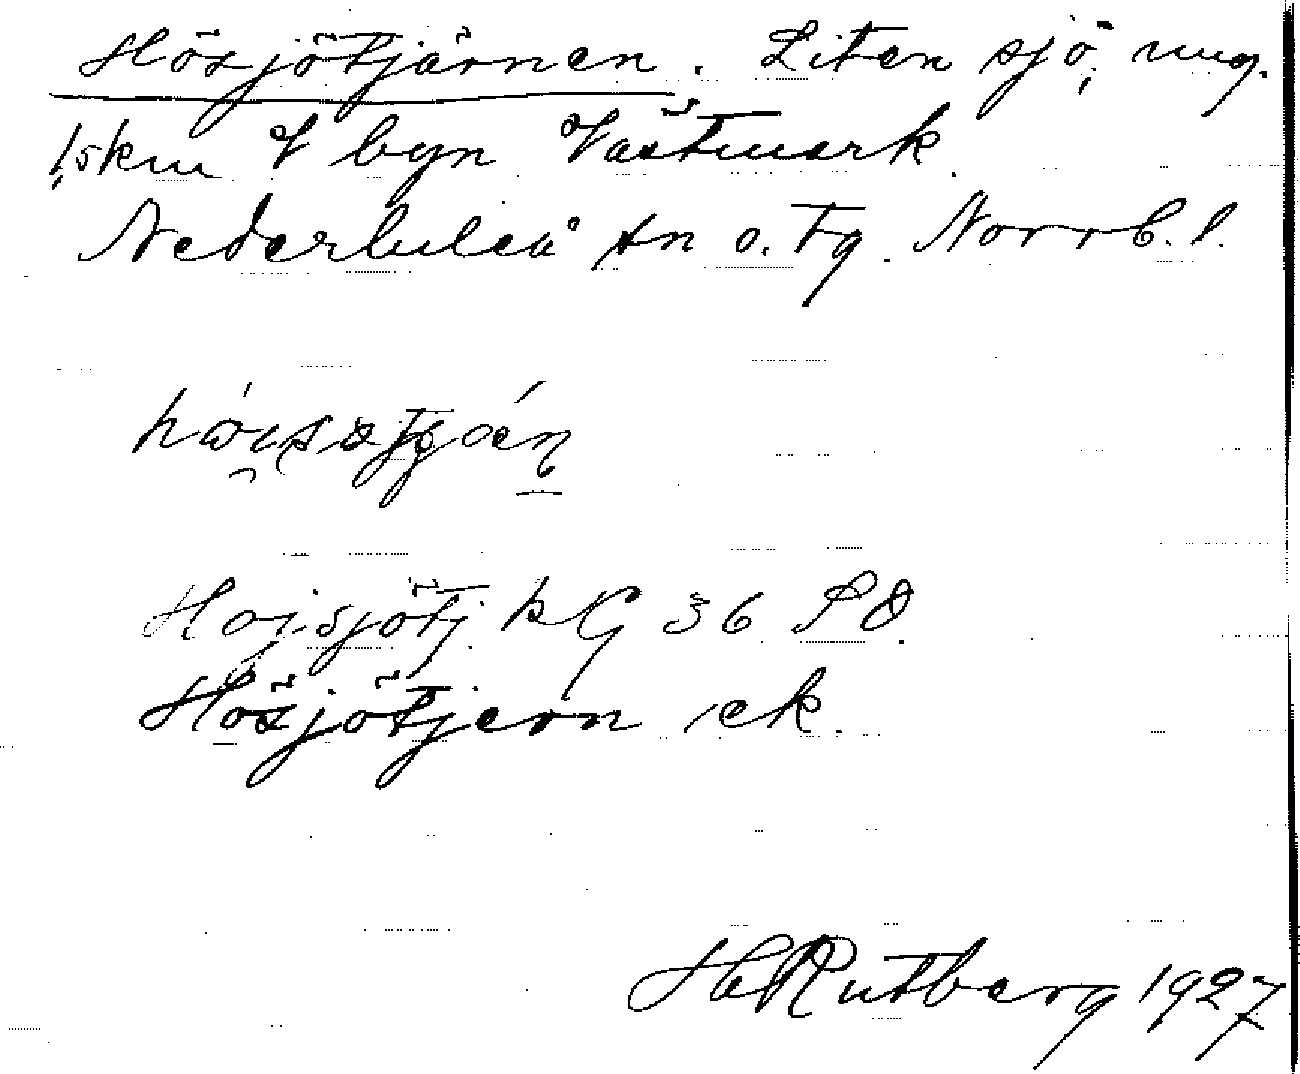 Hösjötjärnen. Liten sjö, ung.
1,5 km V byn Västmark.
Nederluleå sn o. tg. Norrb. l.
Hojsjötj. kG 36 SO.
Hösjötjern ek.
HRutberg 1927